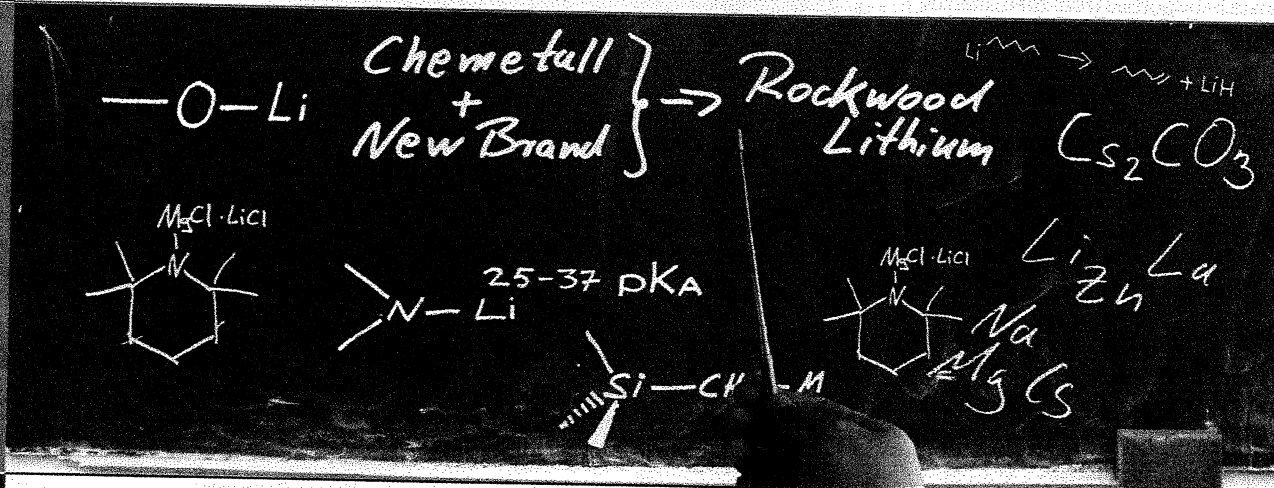 Chemetall
+
New Brand
→ Rockwood
Lithium
Li → + LiH
Cs₂CO₃
—O—Li
MgCl·LiCl
N
N—Li
25-37 pKA
Si—CH
—M
MgCl·LiCl
N
Li Zn La
Na
Mg Cs